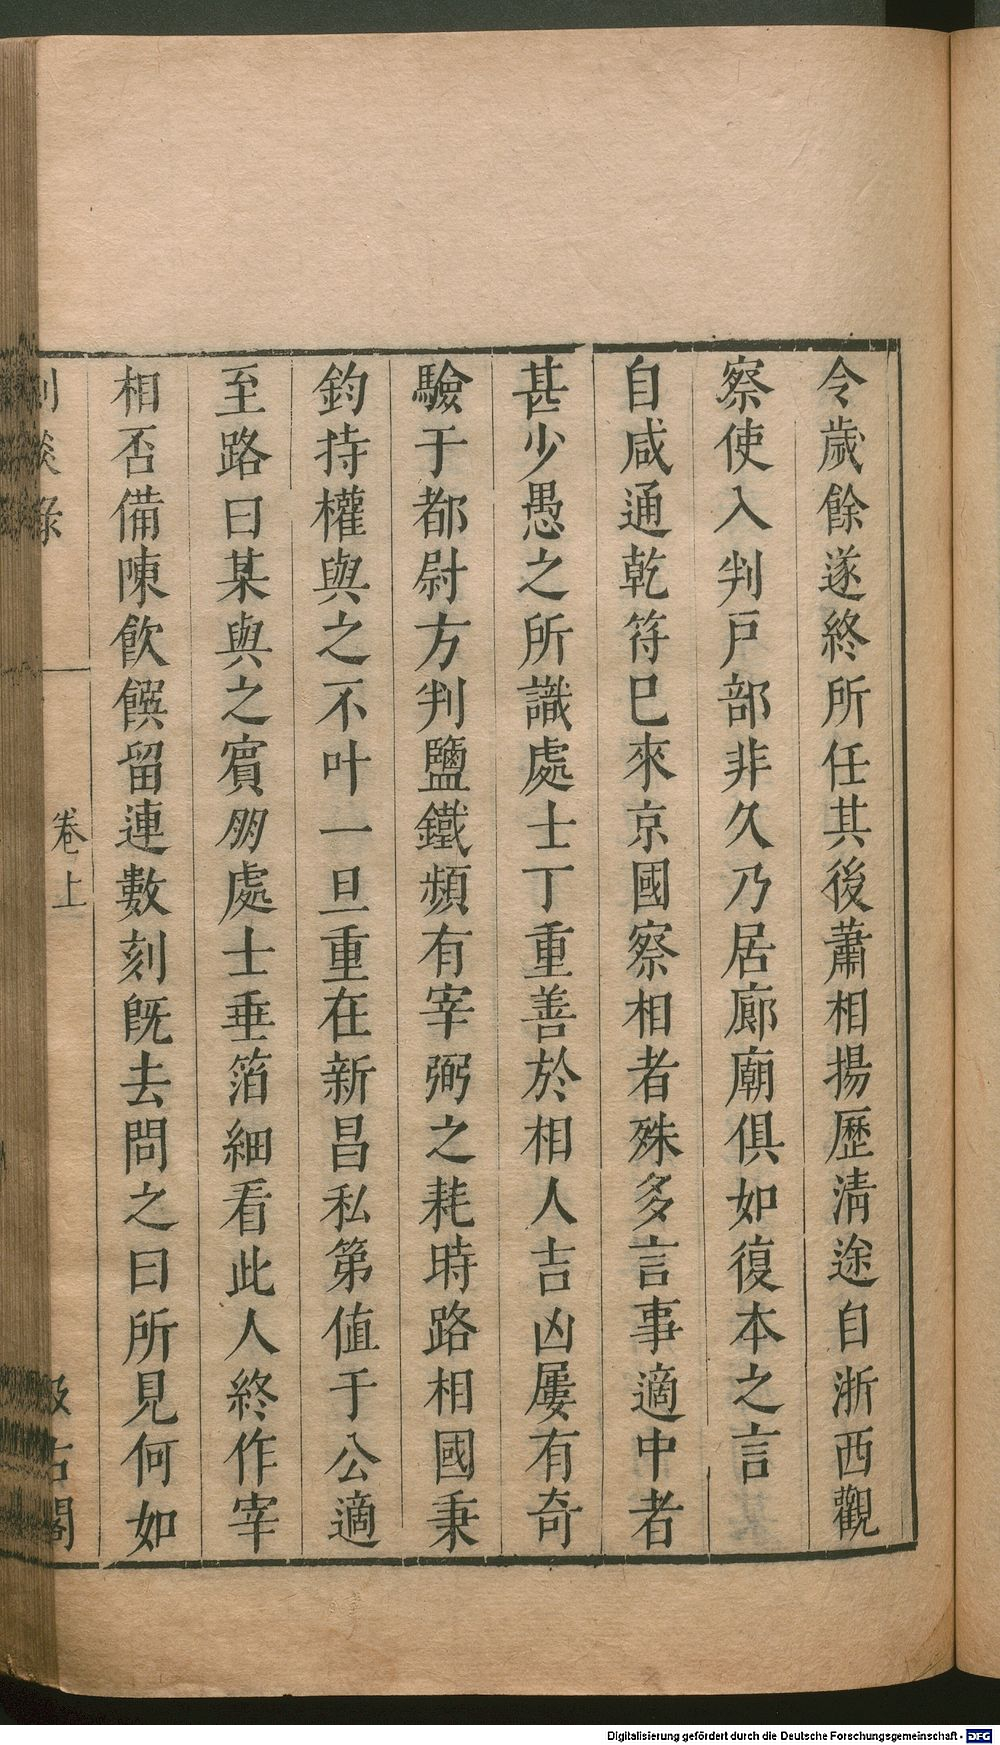 令歲餘遂終所任其後蕭相揚歷清途自浙西觀
察使入判戸部非久乃居廊廟俱如復本之言
自咸通乾符巳來京國察相者殊多言事適中者
甚少愚之所識處士丁重善於相人吉凶屢有奇
驗于都尉方判鹽鐵頻有宰弼之耗時路相國秉
鈞持權與之不叶一旦重在新昌私第值于公適
至路曰某與之賓朋處士垂箔細看此人終作宰
相否備陳飲饌留連數刻旣去問之曰所見何如
談錄
卷上
古閣
Digitalisierung gefördert durch die Deutsche Forschungsgemeinschaft - DFG